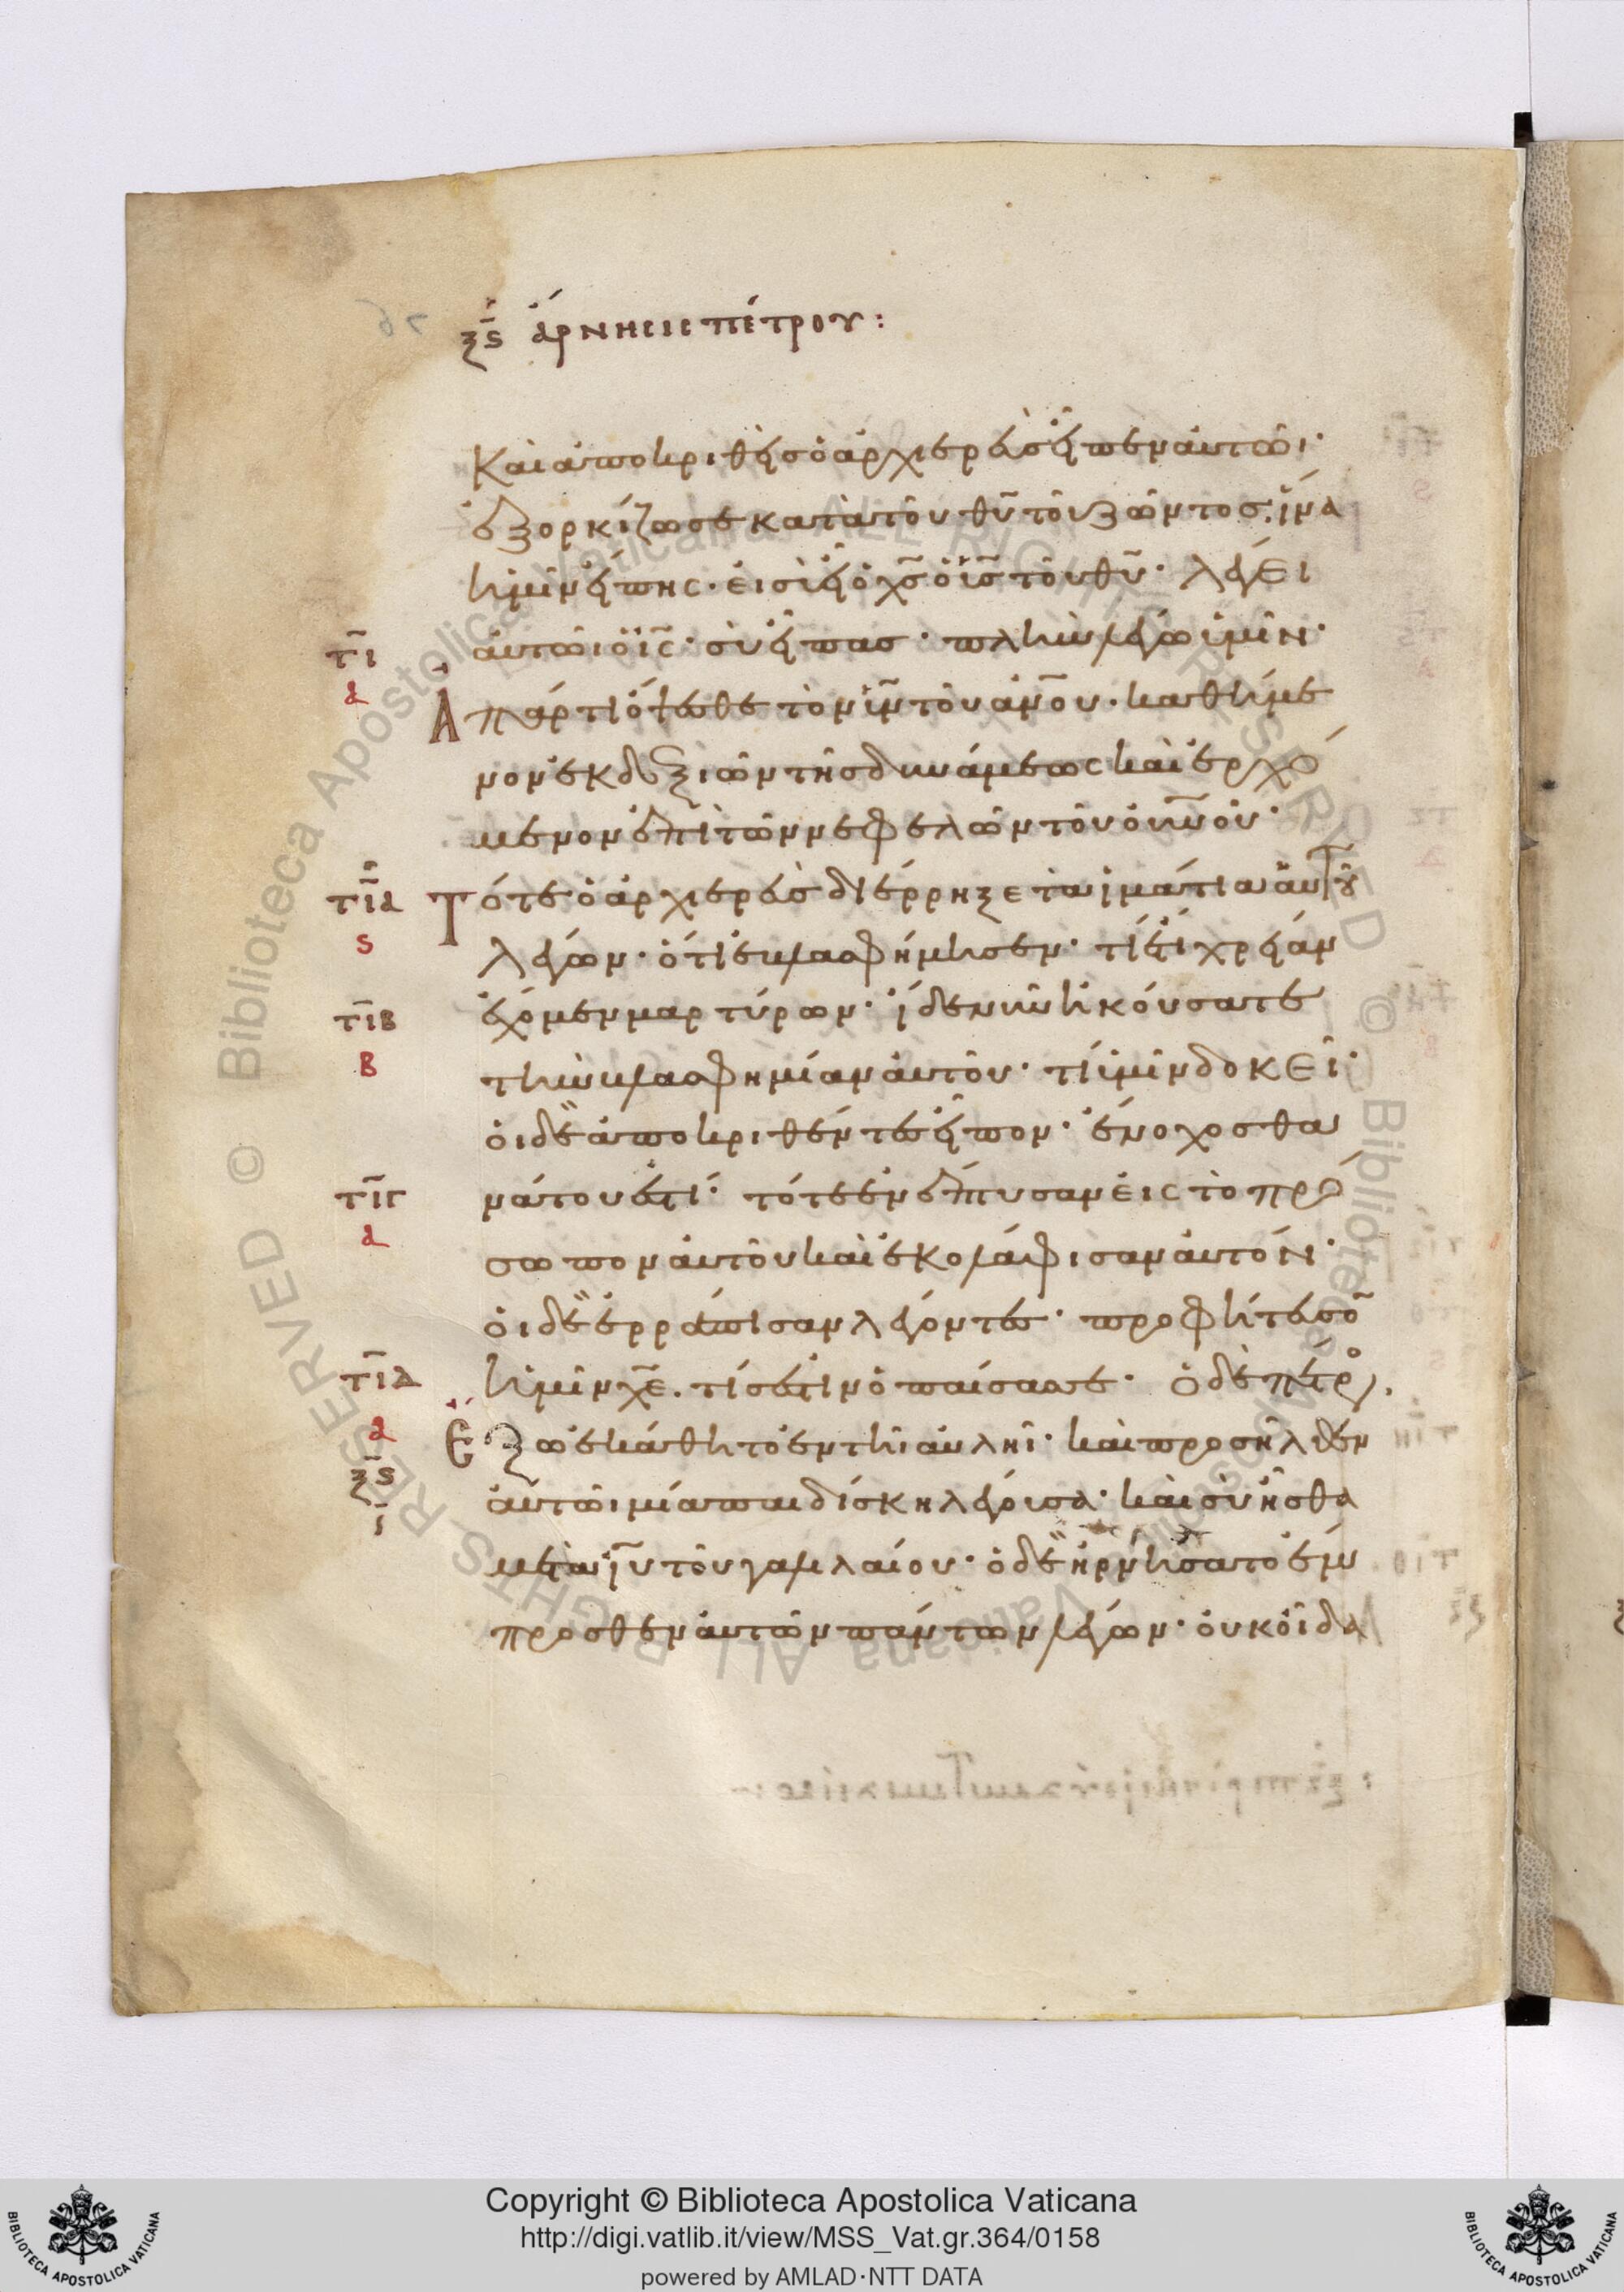 ξϛ ἄρνησις πέτρου:
Καὶ ἀποκριθεὶς ὁ ἀρχιερεὺς εἶπεν αὐτῶι·
ἐξορκίζω σε κατὰ τοῦ θῦ τοῦ ζῶντος· ἵνα
ἡμῖν εἴπης· εἰ σὺ εἶ ὁ χς ὁ ϊς τοῦ θῦ· λέγει
τι αὐτῶι ὁ ις· σὺ εἶπας· πλὴν λέγω ϋμῖν·
α Ἀπάρτι ὄψεσθε τὸν ϊν τοῦ ἀνου· καθήμε
νον ἐκ δεξιῶν τῆς δυνάμεως καὶ ἐρχό
μενον ἐπὶ τῶν νεφελῶν τοῦ οὐνοῦ·
τια Τότε ὁ ἀρχιερεὺς διέρρηξε τὰ ἱμάτια αὐτοῦ
ϛ λέγων· ὅτι ἐβλασφήμησεν· τί ἔτι χρείαν
τιβ ἔχομεν μαρτύρων· ἴδε νῦν ἠκούσατε
β τὴν βλασφημίαν αὐτοῦ· τί ὑμῖν δοκεῖ·
οἱ δὲ ἀποκριθέντες εἶπον· ἔνοχος θα
τιγ νάτου ἐστί· τότε ἐνέπτυσαν εἰς τὸ πρό
α σωπον αὐτοῦ καὶ ἐκολάφισαν αὐτόν·
οἱ δὲ ἐρράπισαν λέγοντες· προφήτευσον
τιδ ἡμῖν χε· τίς ἐστιν ὁ παίσας σε· ὁ δὲ πέτρος
α Ἔξω ἐκάθητο ἐν τῆι αὐλῆι· καὶ προσῆλθεν
ξϛ αὐτῶι μία παιδίσκη λέγουσα· καὶ σὺ ἦσθα
μετὰ ιυ τοῦ γαλιλαίου· ὁ δὲ ἠρνήσατο ἔμ
προσθεν αὐτῶν πάντων λέγων· οὐκ οἶδα
Copyright © Biblioteca Apostolica Vaticana
http://digi.vatlib.it/view/MSS_Vat.gr.364/0158
powered by AMLAD·NTT DATA
BIBLIOTECA APOSTOLICA VATICANA
BIBLIOTECA APOSTOLICA VATICANA